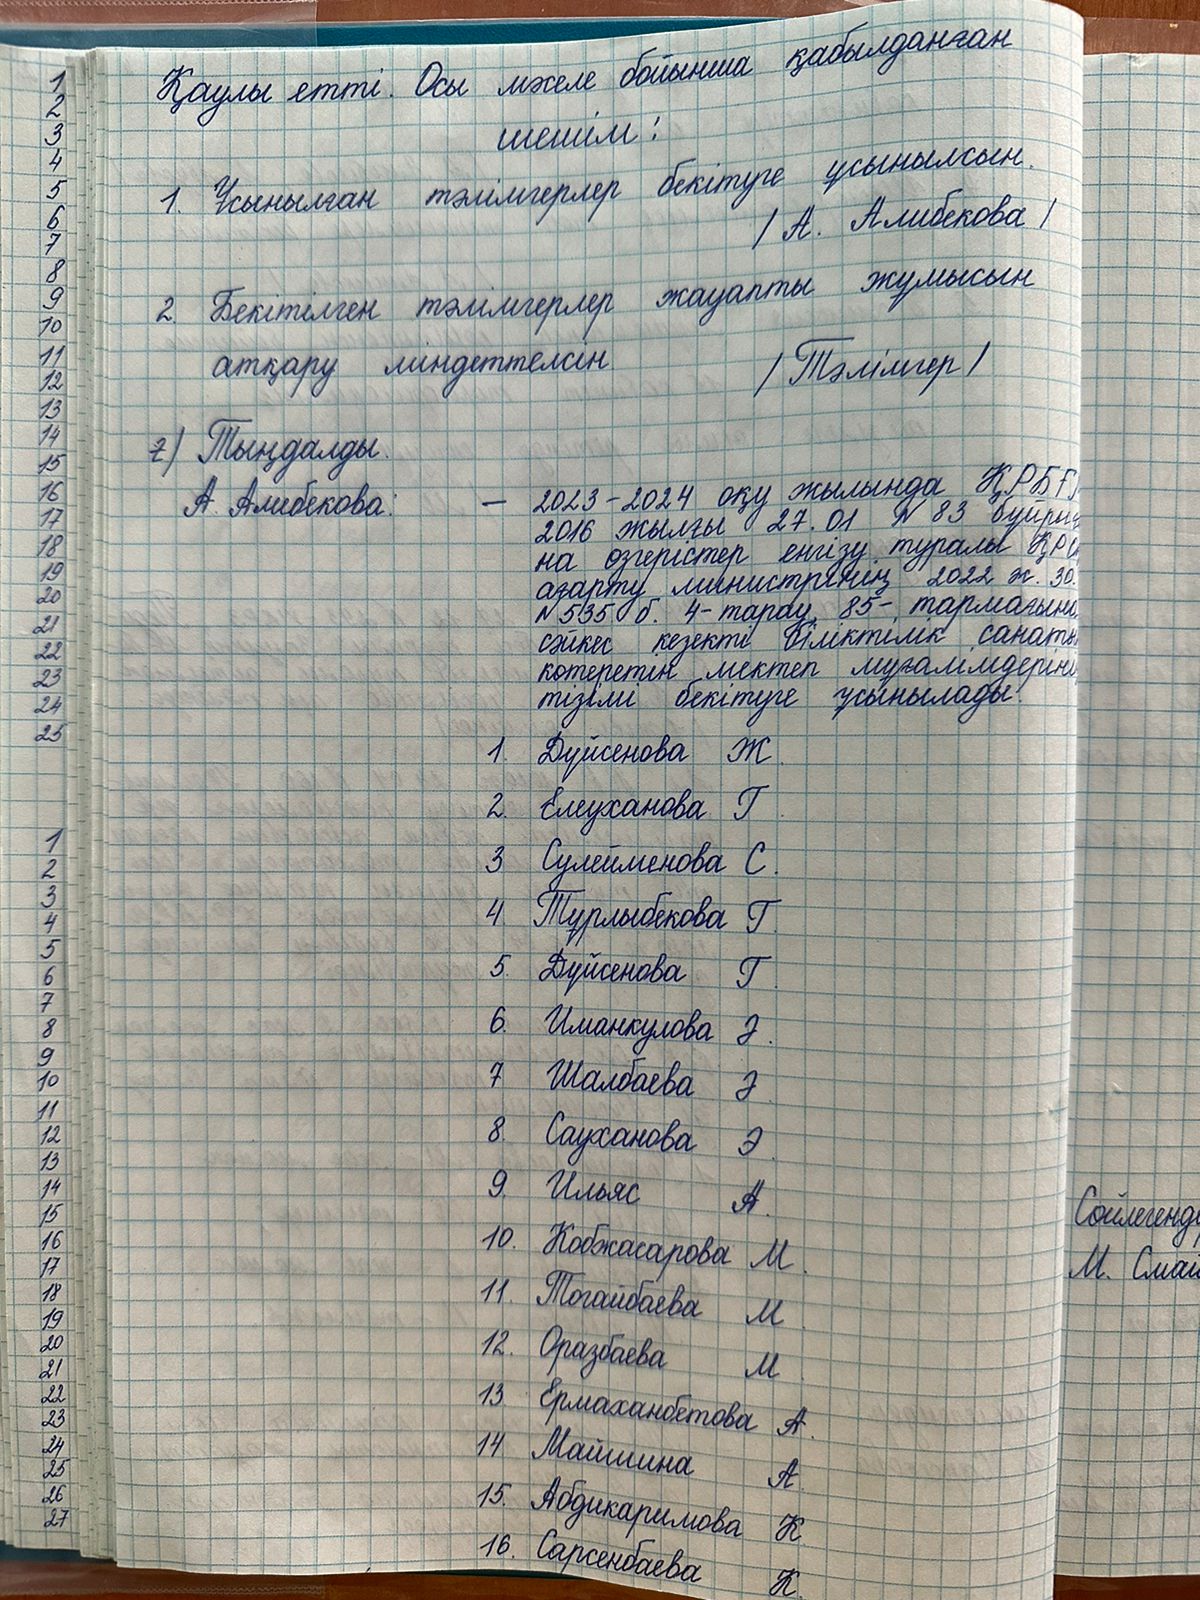 Қаулы етті. Осы мәселе бойынша қабылданған
шешім:
1. Ұсынылған тәлімгерлер бекітуге ұсынылсын.
/А. Алибекова/
2. Бекітілген тәлімгерлер жауапты жұмысын
атқару міндеттелсін /Тәлімгер/
7/ Тыңдалды.
А. Алибекова: – 2023-2024 оқу жылында ҚРБҒ
2016 жылғы 27.01 №83
на өзгерістер енгізу туралы
ағарту министрінің 2022 ж. 30.
№535 б. 4-тарау, 85-
сәйкес кезекті біліктілік
көтеретін мектеп
тізімі бекітуге ұсынылады.
1. Дүйсенова Ж.
2. Елеуханова Г
3 Сулейменова С.
4. Тұрлыбекова Г.
5. Дүйсенова Г.
6. Иманкулова Э.
7 Шалбаева Э.
8. Сауханова Э.
9. Ильяс А.
10. Кобжасарова М.
11. Тогайбаева М
12. Оразбаева М
13 Ермаханбетова А.
14 Майшина А.
15. Абдикаримова К
16. Сарсенбаева К.
1
2
3
4
5
6
7
8
9
10
11
12
13
14
15
16
17
18
19
20
21
22
23
24
25
1
2
3
4
5
6
7
8
9
10
11
12
13
14
15
16
17
18
19
20
21
22
23
24
25
26
27
М.